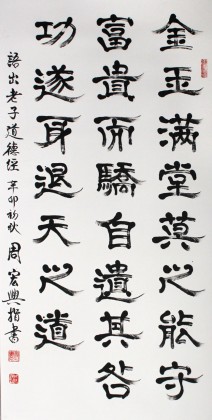 金玉满堂莫之能守
富贵而驕自遺其咎
功遂身退天之道
語出老子道德经 辛卯初秋 周宏興指書